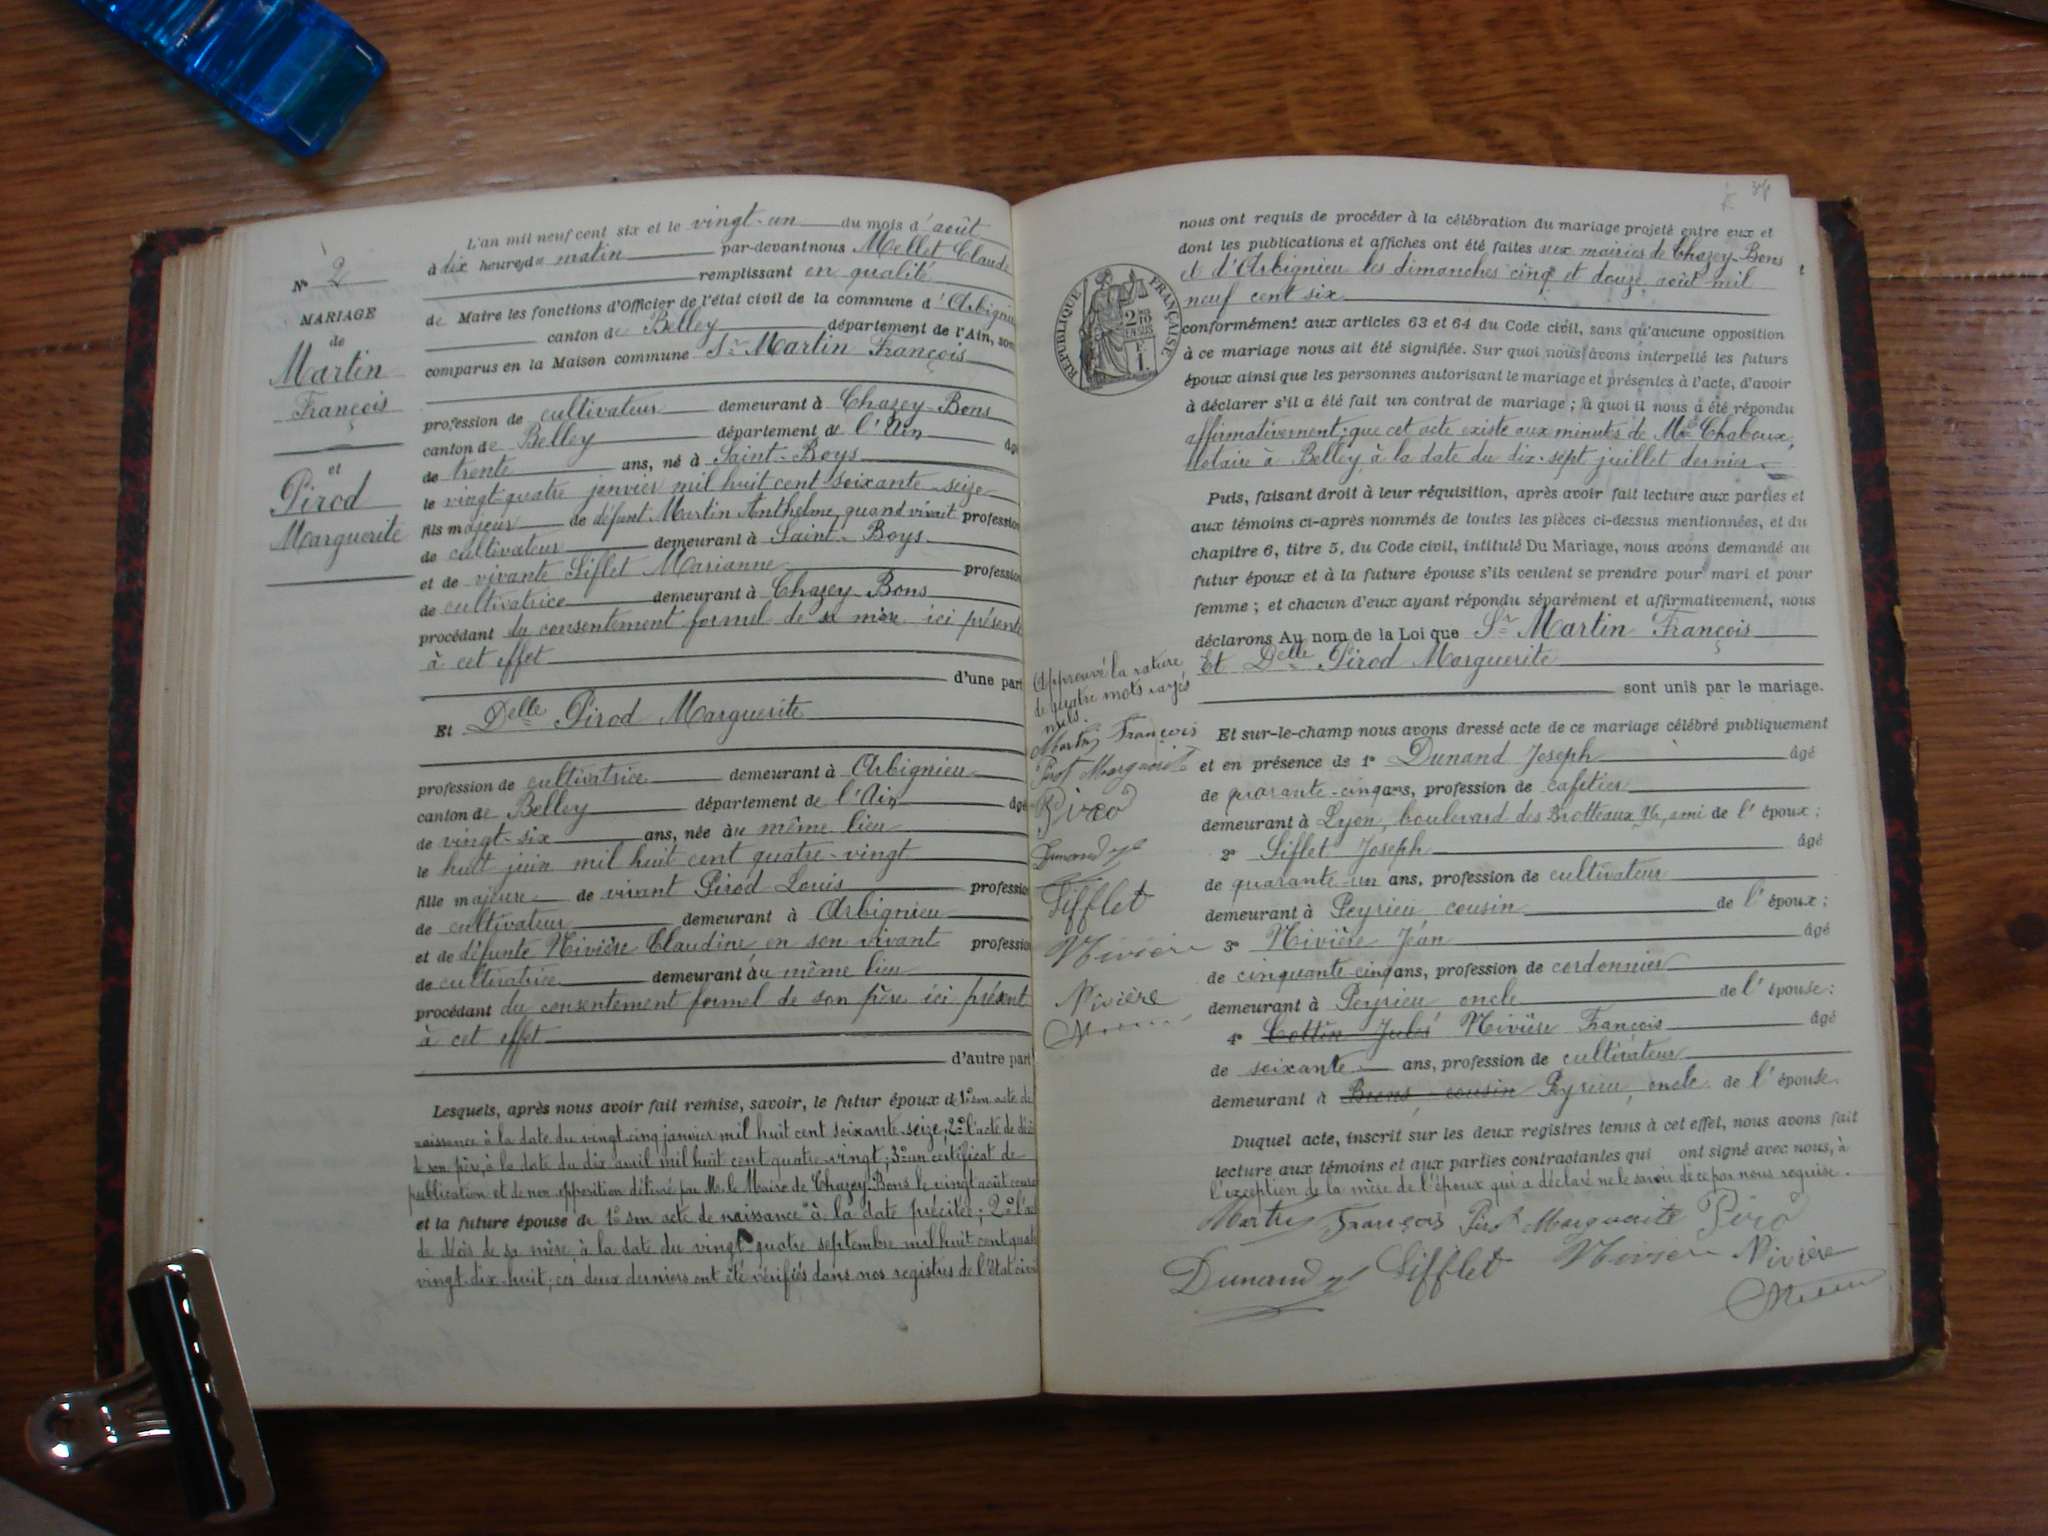 N° 2
MARIAGE
de
Martin
François
et
Pirod
Marguerite
L'an mil neuf cent six et le vingt-un du mois d'août
à dix heures du matin par-devant nous Mellet Claude
remplissant en qualité
de Maire les fonctions d'Officier de l'état civil de la commune d'Arbignieu
canton de Belley département de l'Ain, sont
comparus en la Maison commune Sr Martin François
profession de cultivateur demeurant à Chazey-Bons
canton de Belley département de l'Ain âgé
de trente ans, né à Saint-Boys
le vingt-quatre janvier mil huit cent soixante-seize
fils majeur de défunt Martin Anthelme, quand vivait profession
de cultivateur demeurant à Saint-Boys
et de vivante Siflet Marianne profession
de cultivatrice demeurant à Chazey-Bons
procédant du consentement formel de sa mère ici présente
à cet effet
d'une part
Et Delle Pirod Marguerite
profession de cultivatrice demeurant à Arbignieu
canton de Belley département de l'Ain âgé
de vingt-six ans, née au même lieu
le huit juin mil huit cent quatre-vingt
fille majeure de vivant Pirod Louis profession
de cultivateur demeurant à Arbignieu
et de défunte Nivière Claudine en son vivant profession
de cultivatrice demeurant au même lieu
procédant du consentement formel de son père ici présent
à cet effet
d'autre part
Lesquels, après nous avoir fait remise, savoir, le futur époux de 1° son acte de
naissance à la date du vingt-cinq janvier mil huit cent soixante-seize, 2° l'acte de décès
de son père, à la date du dix avril mil huit cent quatre-vingt; 3° un certificat de
publication et de non opposition délivré par Mr le Maire de Chazey-Bons le vingt août courant
et la future épouse de 1° son acte de naissance à la date précitée; 2° l'acte
de décès de sa mère, à la date du vingt-quatre septembre mil huit cent quatre
vingt-dix-huit; ces deux derniers ont été vérifiés dans nos registres de l'état civil
RÉPUBLIQUE FRANÇAISE
nous ont requis de procéder à la célébration du mariage projeté entre eux et
dont les publications et affiches ont été faites aux mairies de Chazey-Bons
et d'Arbignieu les dimanches cinq et douze août mil
neuf cent six
conformément aux articles 63 et 64 du Code civil, sans qu'aucune opposition
à ce mariage nous ait été signifiée. Sur quoi nous avons interpellé les futurs
époux ainsi que les personnes autorisant le mariage et présentes à l'acte, d'avoir
à déclarer s'il a été fait un contrat de mariage; à quoi il nous a été répondu
affirmativement; que cet acte existe aux minutes de Me Chaboux,
notaire à Belley à la date du dix-sept juillet dernier
Puis, faisant droit à leur réquisition, après avoir fait lecture aux parties et
aux témoins ci-après nommés de toutes les pièces ci-dessus mentionnées, et du
chapitre 6, titre 5, du Code civil, intitulé Du Mariage, nous avons demandé au
futur époux et à la future épouse s'ils veulent se prendre pour mari et pour
femme; et chacun d'eux ayant répondu séparément et affirmativement, nous
déclarons Au nom de la Loi que Sr Martin François
Et Delle Pirod Marguerite
sont unis par le mariage.
Et sur-le-champ nous avons dressé acte de ce mariage célébré publiquement
et en présence de 1° Dunand Joseph âgé
de quarante-cinq ans, profession de cafetier
demeurant à Lyon, boulevard des Brotteaux, ami de l'époux;
2° Siflet Joseph âgé
de quarante-un ans, profession de cultivateur
demeurant à Peyrieu, cousin de l'époux;
3° Nivière Jean âgé
de cinquante-cinq ans, profession de cordonnier
demeurant à Peyrieu oncle de l'épouse;
4° Cottin Jules Nivière François âgé
de soixante ans, profession de cultivateur
demeurant à Brens, cousin Peyrieu, oncle de l'épouse
Duquel acte, inscrit sur les deux registres tenus à cet effet, nous avons fait
lecture aux témoins et aux parties contractantes qui ont signé avec nous, à
l'exception de la mère de l'époux qui a déclaré ne le savoir de ce par nous requise.
Martin François Pirot Marguerite Piro
Dunand Sifflet Nivière Nivière
Approuvé la rature
de quatre mots rayés
nuls.
Martin François
Pirot Marguerite
Piro
Dunand
Sifflet
Nivière
Nivière